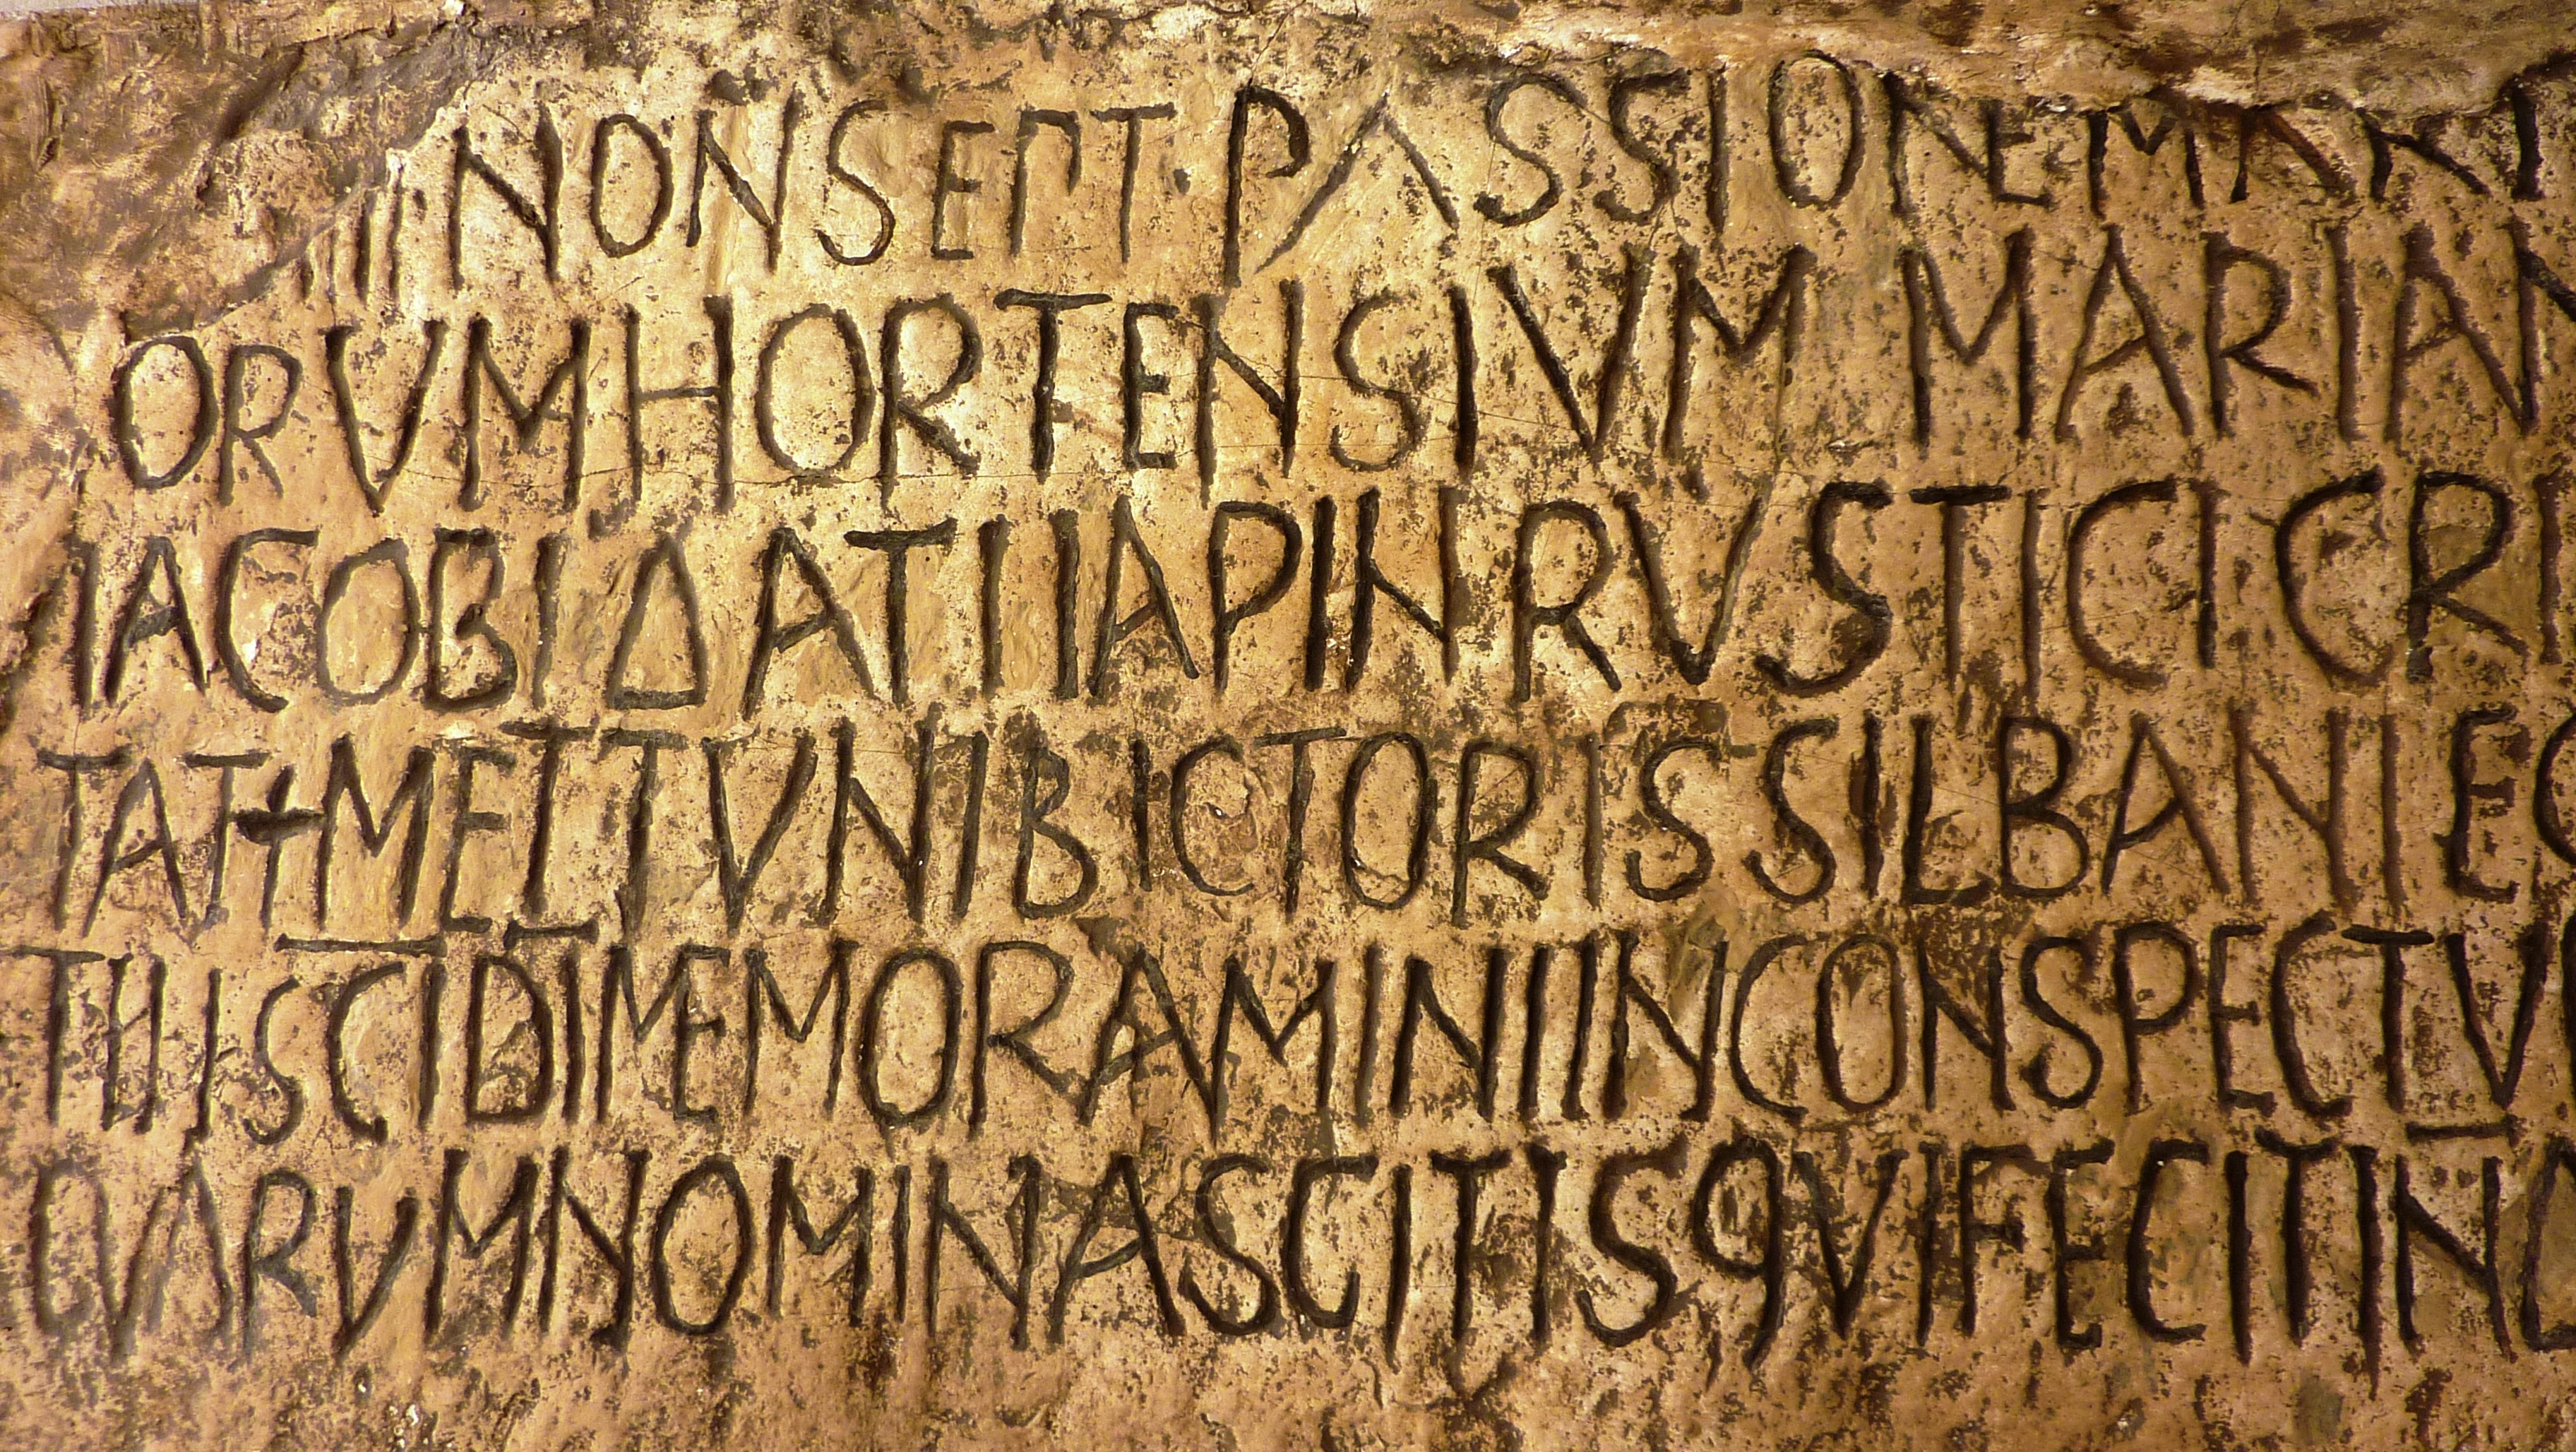 III NON SEPT · PASSIONE MART
ORVM HORTENSIVM MARIAN
IACOBI ΔATI IAPIN RVSTICI CRI
TAT+ METTVNI BICTORIS SILBANI EG
TII SCI DI MEMORAMINI IN CONSPECTV
QVARVM NOMINA SCIT IS QVI FECIT IN